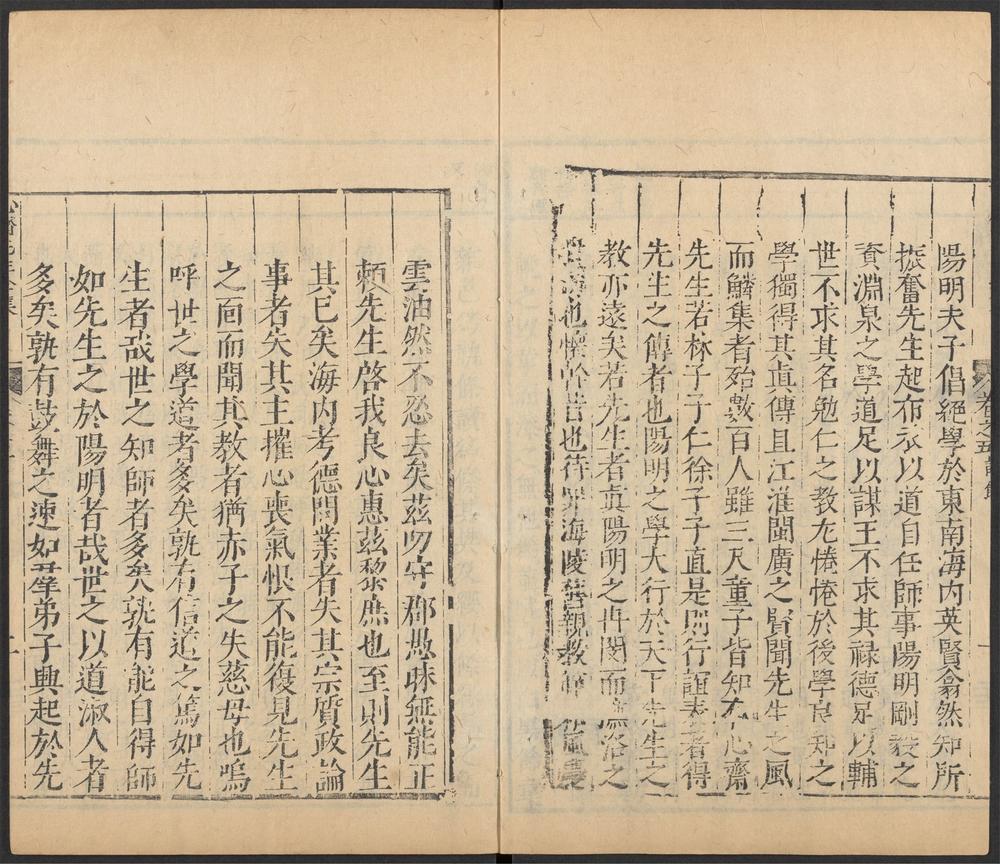 陽明夫子倡絕學於東南海內英賢翕然知所
振奮先生起布衣以道自任師事陽明剛毅之
資淵泉之學道足以謀王不求其祿德足以輔
世不求其名勉仁之教尤惓惓於後學良知之
學獨得其眞傳且江淮閩廣之賢聞先生之風
而鱗集者殆數百人雖三尺童子皆知有心齋
先生若林子子仁徐子子直是則行誼表著得
先生之傳者也陽明之學大行於天下先生之
教亦遠矣若先生者眞陽明之冉閔而濂洛之
也懷幹昔也符海陵親教
雲油然不忍去矣茲叨守郡愚昧無能正
賴先生啓我良心惠茲黎庶也至則先生
其已矣海內考德問業者失其宗質政論
事者失其主摧心喪氣恨不能復見先生
之面而聞其教者猶赤子之失慈母也嗚
呼世之學道者多矣孰有信道之篤如先
生者哉世之知師者多矣孰有能自得師
如先生之於陽明者哉世之以道淑人者
多矣孰有鼓舞之速如羣弟子興起於先